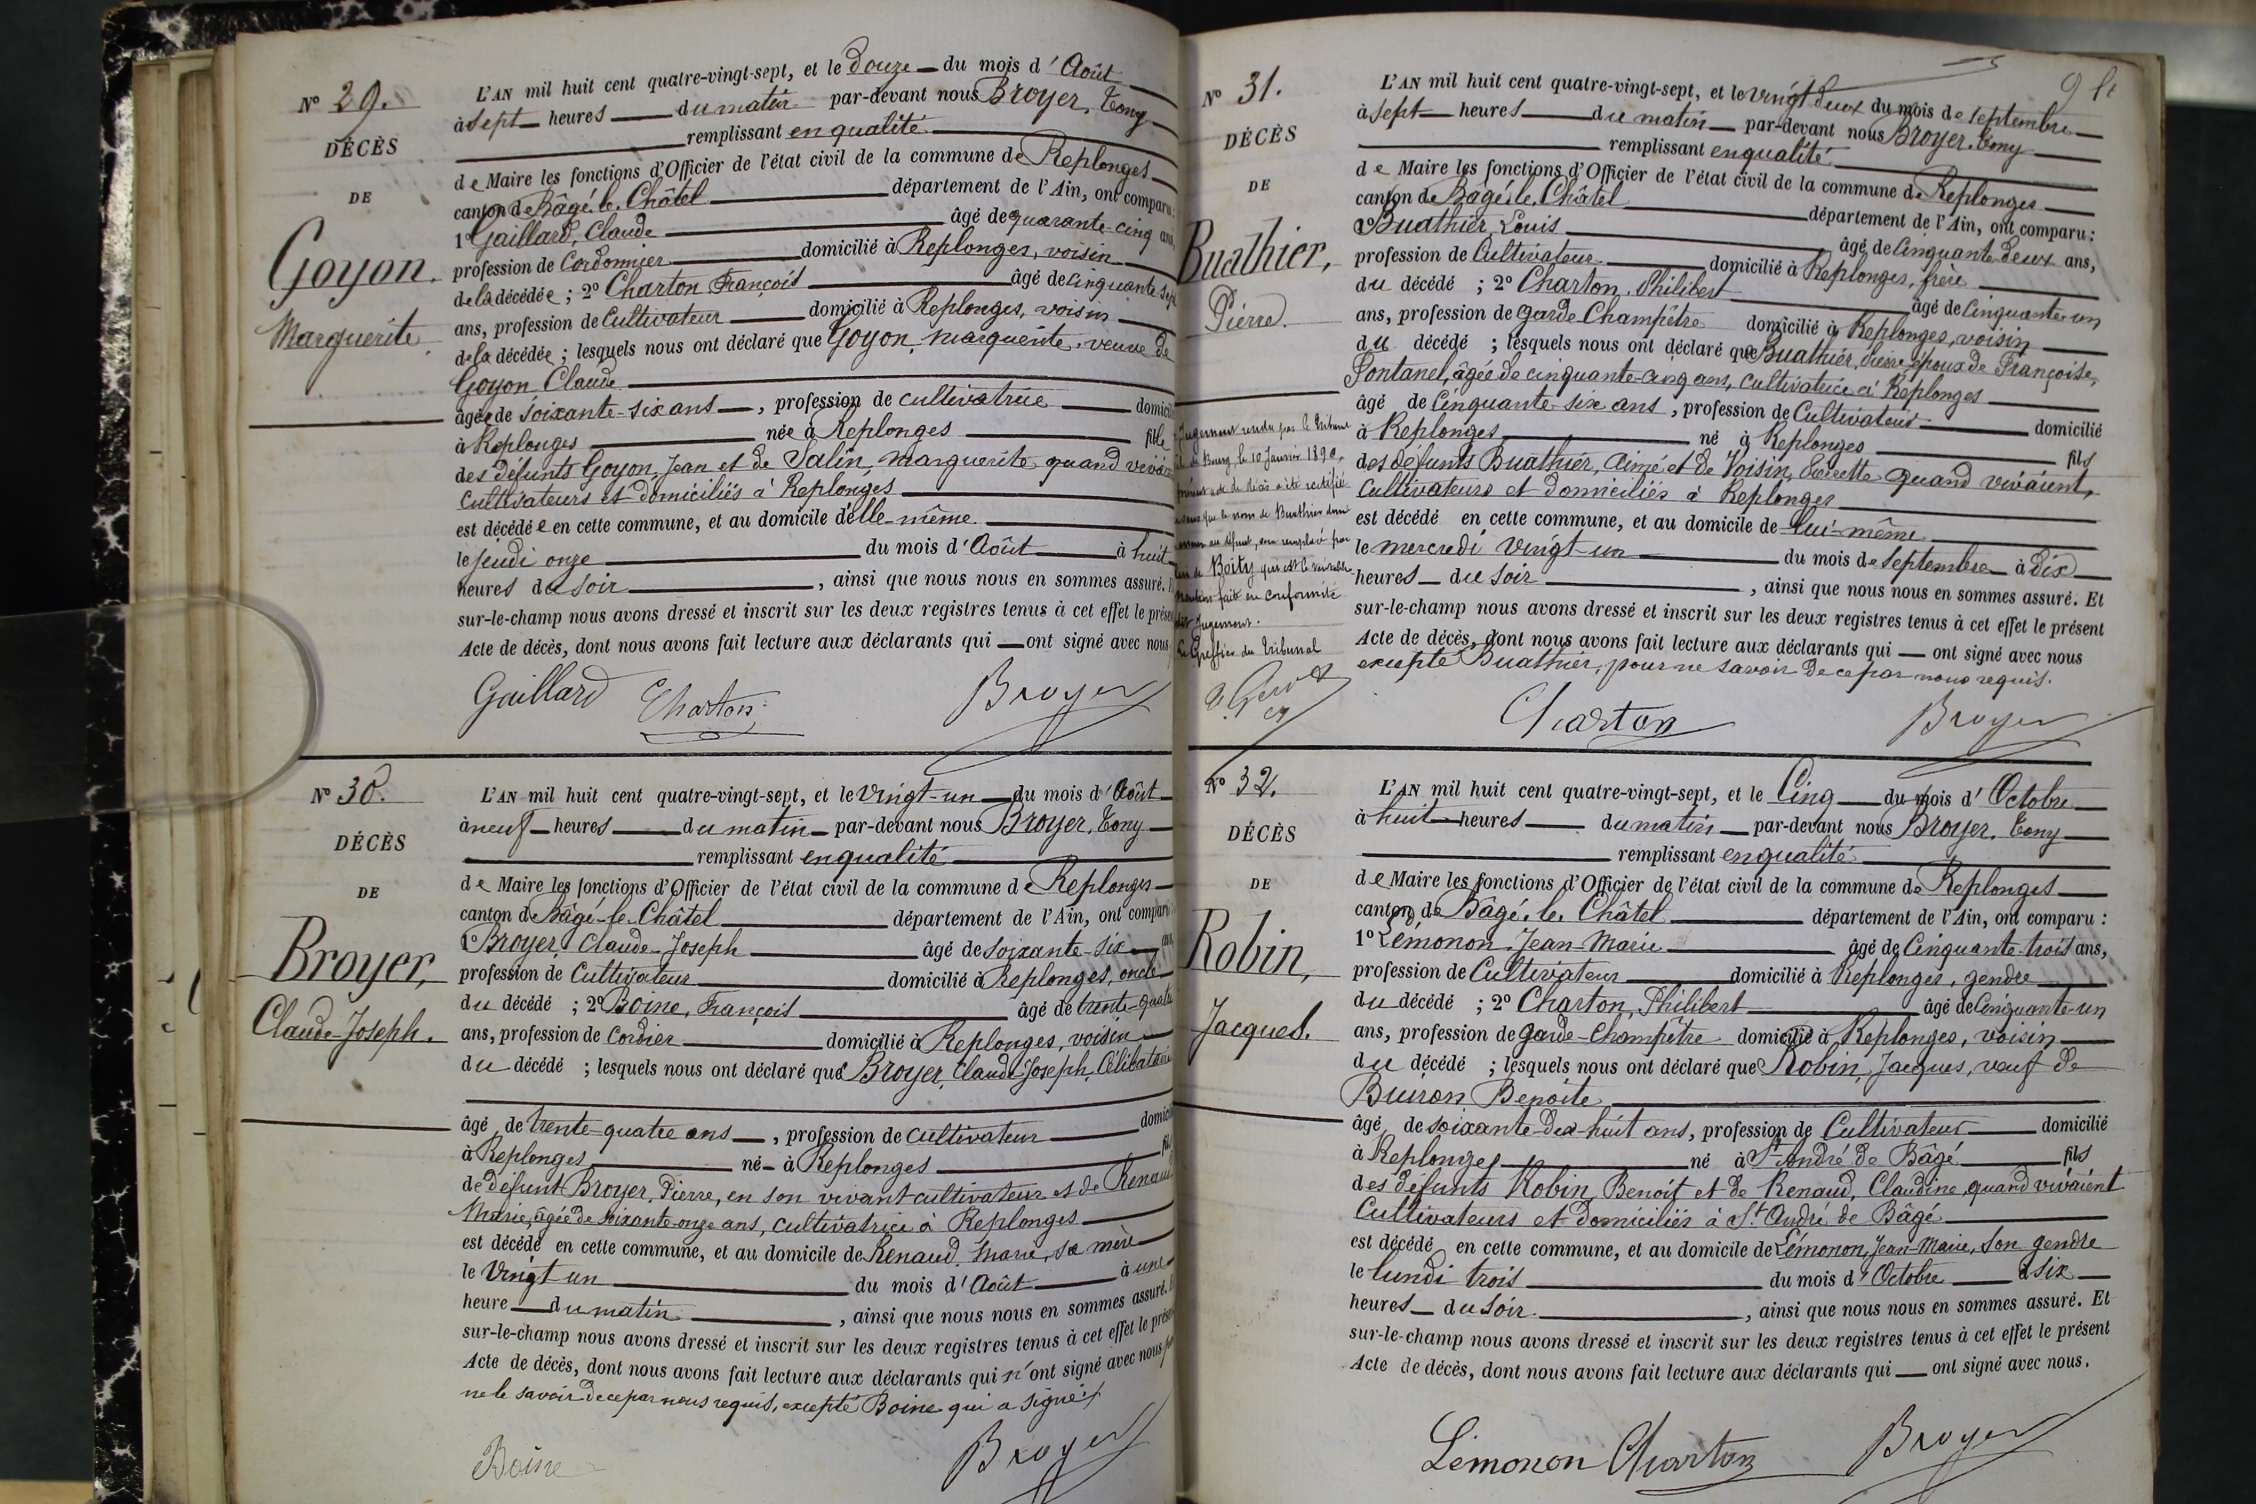 N° 29.
DÉCÈS
DE
Goyon,
Marguerite
L'AN mil huit cent quatre-vingt-sept, et le Douze du mois d'Août
à sept heures du matin par-devant nous Broyer, Tony
remplissant en qualité
de Maire les fonctions d'Officier de l'état civil de la commune de Replonges
canton de Bâgé-le-Châtel département de l'Ain, ont comparu:
1° Gaillard, Claude âgé de quarante-cinq ans,
profession de Cordonnier domicilié à Replonges, voisin
de la décédée ; 2° Charton François âgé de cinquante-sept
ans, profession de Cultivateur domicilié à Replonges, voisin
de la décédée ; lesquels nous ont déclaré que Goyon, Marguerite, veuve de
Goyon Claude
âgée de soixante-six ans, profession de cultivatrice domicili
à Replonges née à Replonges fille
des défunts Goyon, Jean et de Salin, Marguerite quand vivaient
cultivateurs et domiciliés à Replonges
est décédée en cette commune, et au domicile d'elle-même
le jeudi onze du mois d'Août à huit
heures du soir, ainsi que nous nous en sommes assuré.
sur-le-champ nous avons dressé et inscrit sur les deux registres tenus à cet effet le prése
Acte de décès, dont nous avons fait lecture aux déclarants qui ont signé avec nous
Gaillard Charton Broyer
N° 30.
DÉCÈS
DE
Broyer,
Claude-Joseph.
L'AN mil huit cent quatre-vingt-sept, et le Vingt-un du mois d'Août
à neuf heures du matin par-devant nous Broyer, Tony
remplissant en qualité
de Maire les fonctions d'Officier de l'état civil de la commune de Replonges
canton de Bâgé-le-Châtel département de l'Ain, ont comparu
1° Broyer, Claude-Joseph âgé de soixante-six ans,
profession de Cultivateur domicilié à Replonges, oncle
du décédé ; 2° Boine, François âgé de trente-quatre
ans, profession de Cordier domicilié à Replonges, voisin
du décédé ; lesquels nous ont déclaré que Broyer, Claude Joseph, Célibataire
âgé de trente-quatre ans, profession de cultivateur domici
à Replonges né à Replonges fils
de défunt Broyer, Pierre, en son vivant cultivateur et de Renaud
Marie, âgée de soixante-onze ans, cultivatrice à Replonges
est décédé en cette commune, et au domicile de Renaud, Marie, sa mère
le Vingt-un du mois d'Août à une
heure du matin, ainsi que nous nous en sommes assuré.
sur-le-champ nous avons dressé et inscrit sur les deux registres tenus à cet effet le présen
Acte de décès, dont nous avons fait lecture aux déclarants qui n'ont signé avec nous pour
ne le savoir de ce par nous requis, excepté Boine qui a signé
Boine Broyer
N° 31.
DÉCÈS
DE
Buathier,
Pierre.
Jugement rendu par le Tribunal
de Bourg, le 10 Janvier 1890,
présent acte de décès a été rectifié
que le nom de Buathier donné
au défunt, sera remplacé par
de Boity qui est le véritable
Mention faite en conformité
dit jugement.
Le Greffier du Tribunal
L'AN mil huit cent quatre-vingt-sept, et le Vingt-deux du mois de septembre
à sept heures du matin par-devant nous Broyer, Tony
remplissant en qualité
de Maire les fonctions d'Officier de l'état civil de la commune de Replonges
canton de Bâgé-le-Châtel département de l'Ain, ont comparu :
1° Buathier, Louis âgé de Cinquante-deux ans,
profession de Cultivateur domicilié à Replonges, frère
du décédé ; 2° Charton, Philibert âgé de Cinquante-un
ans, profession de garde Champêtre domicilié à Replonges, voisin
du décédé ; lesquels nous ont déclaré que Buathier, Pierre époux de Françoise
Fontanel, âgée de cinquante-cinq ans, cultivatrice à Replonges
âgé de Cinquante-six ans, profession de Cultivateur domicilié
à Replonges né à Replonges fils
des défunts Buathier, Aimé et de Voisin, quand vivaient,
cultivateurs et domiciliés à Replonges
est décédé en cette commune, et au domicile de lui-même
le mercredi vingt-un du mois de septembre à Dix
heures du soir, ainsi que nous nous en sommes assuré. Et
sur-le-champ nous avons dressé et inscrit sur les deux registres tenus à cet effet le présent
Acte de décès, dont nous avons fait lecture aux déclarants qui ont signé avec nous
excepté Buathier, pour ne savoir de ce par nous requis.
Charton Broyer
N° 32.
DÉCÈS
DE
Robin,
Jacques.
L'AN mil huit cent quatre-vingt-sept, et le Cinq du mois d'Octobre
à huit heures du matin par-devant nous Broyer, Tony
remplissant en qualité
de Maire les fonctions d'Officier de l'état civil de la commune de Replonges
canton de Bâgé-le-Châtel département de l'Ain, ont comparu :
1° Lémonon Jean-Marie âgé de Cinquante-trois ans,
profession de Cultivateur domicilié à Replonges, gendre
du décédé ; 2° Charton, Philibert âgé de Cinquante-un
ans, profession de garde-Champêtre domicilié à Replonges, voisin
du décédé ; lesquels nous ont déclaré que Robin, Jacques, veuf de
Buiron Benoite
âgé de soixante-dix-huit ans, profession de Cultivateur domicilié
à Replonges né à St André de Bâgé fils
des défunts Robin, Benoit et de Renaud, Claudine, quand vivaient
Cultivateurs et domiciliés à St André de Bâgé
est décédé en cette commune, et au domicile de Lémonon, Jean-Marie, son gendre
le lundi trois du mois d'Octobre à six
heures du soir, ainsi que nous nous en sommes assuré. Et
sur-le-champ nous avons dressé et inscrit sur les deux registres tenus à cet effet le présent
Acte de décès, dont nous avons fait lecture aux déclarants qui ont signé avec nous.
Lémonon Charton Broyer